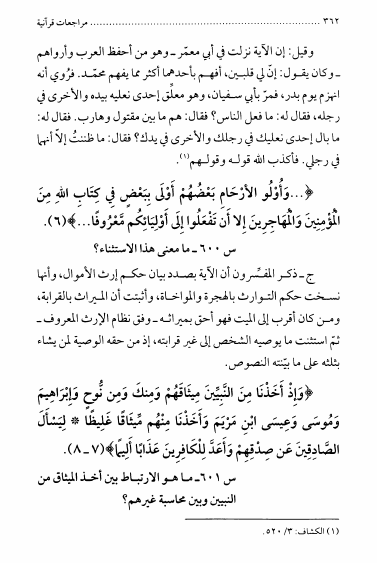 ٣٦٢ ........................................ مراجعات قرآنية
وقيل: إن الآية نزلت في أبي معمّر ـ وهو من أحفظ العرب وأرواهم
ـ وكان يقول: إن لي قلبين، أفهم بأحدهما أكثر مما يفهم محمّد. فرُوي أنه
انهزم يوم بدر، فمرّ بأبي سفيان، وهو معلّق إحدى نعليه بيده والأخرى في
رجله، فقال له: ما فعل الناس؟ فقال: هم ما بين مقتول وهارب. فقال له:
ما بال إحدى نعليك في رجلك والأخرى في يدك؟ فقال: ما ظننتُ إلاّ أنهما
في رجلي. فأكذب الله قولـه وقولـهم(١).
﴿...وَأُوْلُو الأَرْحَامِ بَعْضُهُمْ أَوْلَى بِبَعْضٍ فِي كِتَابِ اللهِ مِنَ
الْمُؤْمِنِينَ وَالْمُهَاجِرِينَ إِلا أَن تَفْعَلُوا إِلَى أَوْلِيَائِكُم مَّعْرُوفًا...﴾(٦).
س ٦٠٠ ـ ما معنى هذا الاستثناء؟
ج ـ ذكر المفسّرون أن الآية بصدد بيان حكم إرث الأموال، وأنها
نسخت حكم التوارث بالهجرة والمواخاة، وأثبتت أن الميراث بالقرابة،
ومـن كان أقرب إلى الميت فهو أحق بميراثـه ـ وفق نظام الإرث المعروف ـ
ثمّ استثنت ما يوصيه الشخص إلى غير قرابته، إذ من حقه الوصية لمن يشاء
بثلثه على ما بيّنته النصوص.
﴿وَإِذْ أَخَذْنَا مِنَ النَّبِيِّينَ مِيثَاقَهُمْ وَمِنكَ وَمِن نُّوحٍ وَإِبْرَاهِيمَ
وَمُوسَى وَعِيسَى ابْنِ مَرْيَمَ وَأَخَذْنَا مِنْهُم مِّيثَاقًا غَلِيظًا * لِيَسْأَلَ
الصَّادِقِينَ عَن صِدْقِهِمْ وَأَعَدَّ لِلْكَافِرِينَ عَذَابًا أَلِيمًا﴾(٧ ـ ٨).
س ٦٠١ ـ مـا هـو الارتبـاط بين أخـذ الميثاق من
النبيين وبين محاسبة غيرهم؟
(١) الكشاف: ٣/ ٥٢٠.